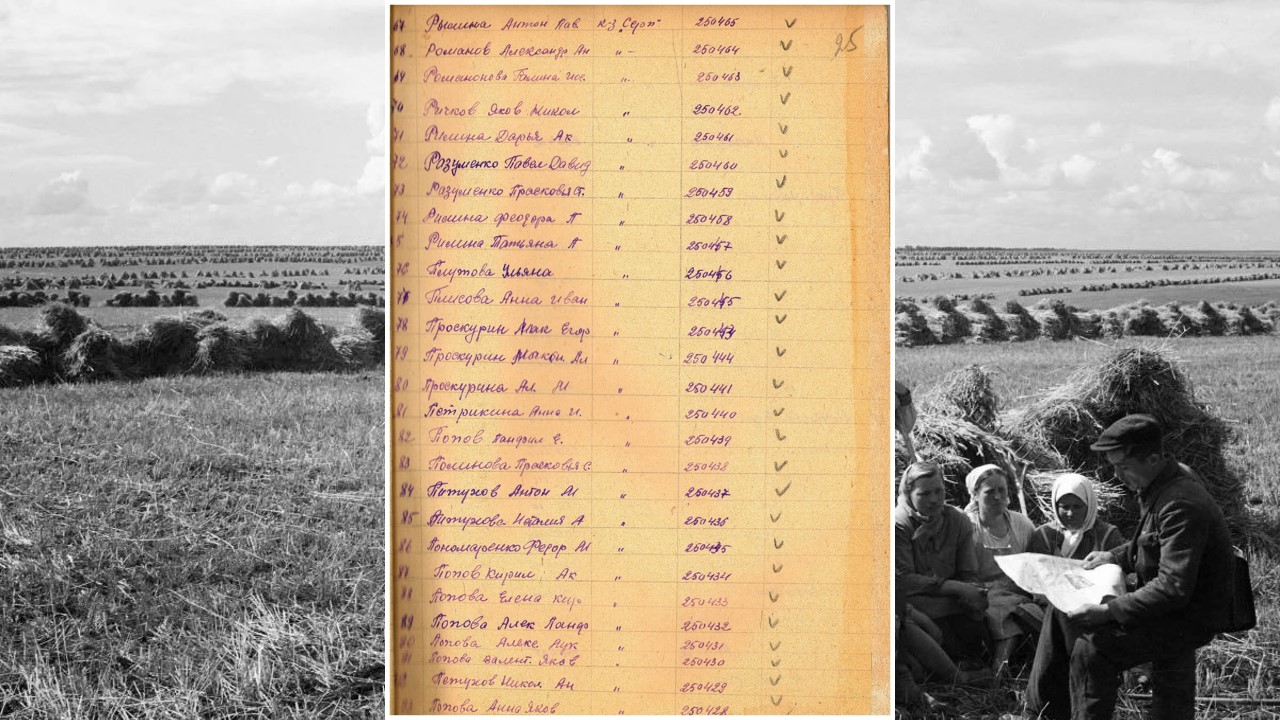 25
Рылина Антон Пав к-з "Серп" 250465
68. Романов Александр Ан „ – 250464
Романонова Галина „ 250463
70 Ричков Яков Никол „ 250462
71 Рилина Дарья Ак „ 250461
72 Разуменко Павел Давид „ 250460
73 Разуменко Прасковья С. „ 250459
74 Рилина Феодора П „ 250458
Рилина Татьяна А „ 250457
76 Плутова Ульяна „ 250456
77 Плисова Анна Иван „ 250445
78 Проскурин Егор „
79 Проскурин Ал „ 250444
80 Проскурина Ал. М „ 250441
81 Петрикина Анна И. „ 250440
82 Попов Е. „ 250439
83 Полинова Прасковья С. „ 250438
84 Петухов Антон М „ 250437
85 Петухова Наталия А „ 250436
86 Пономаренко Федор М „ 250435
Попов Кирил Ак „ 250434
Попова Елена Кир „ 250433
89 Попова Алек „ 250432
90 Попова Алекс Лук „ 250431
91 Попова Валент. Яков „ 250430
Петухов Никол Ан „ 250429
Попова Анна Яков „ 250428